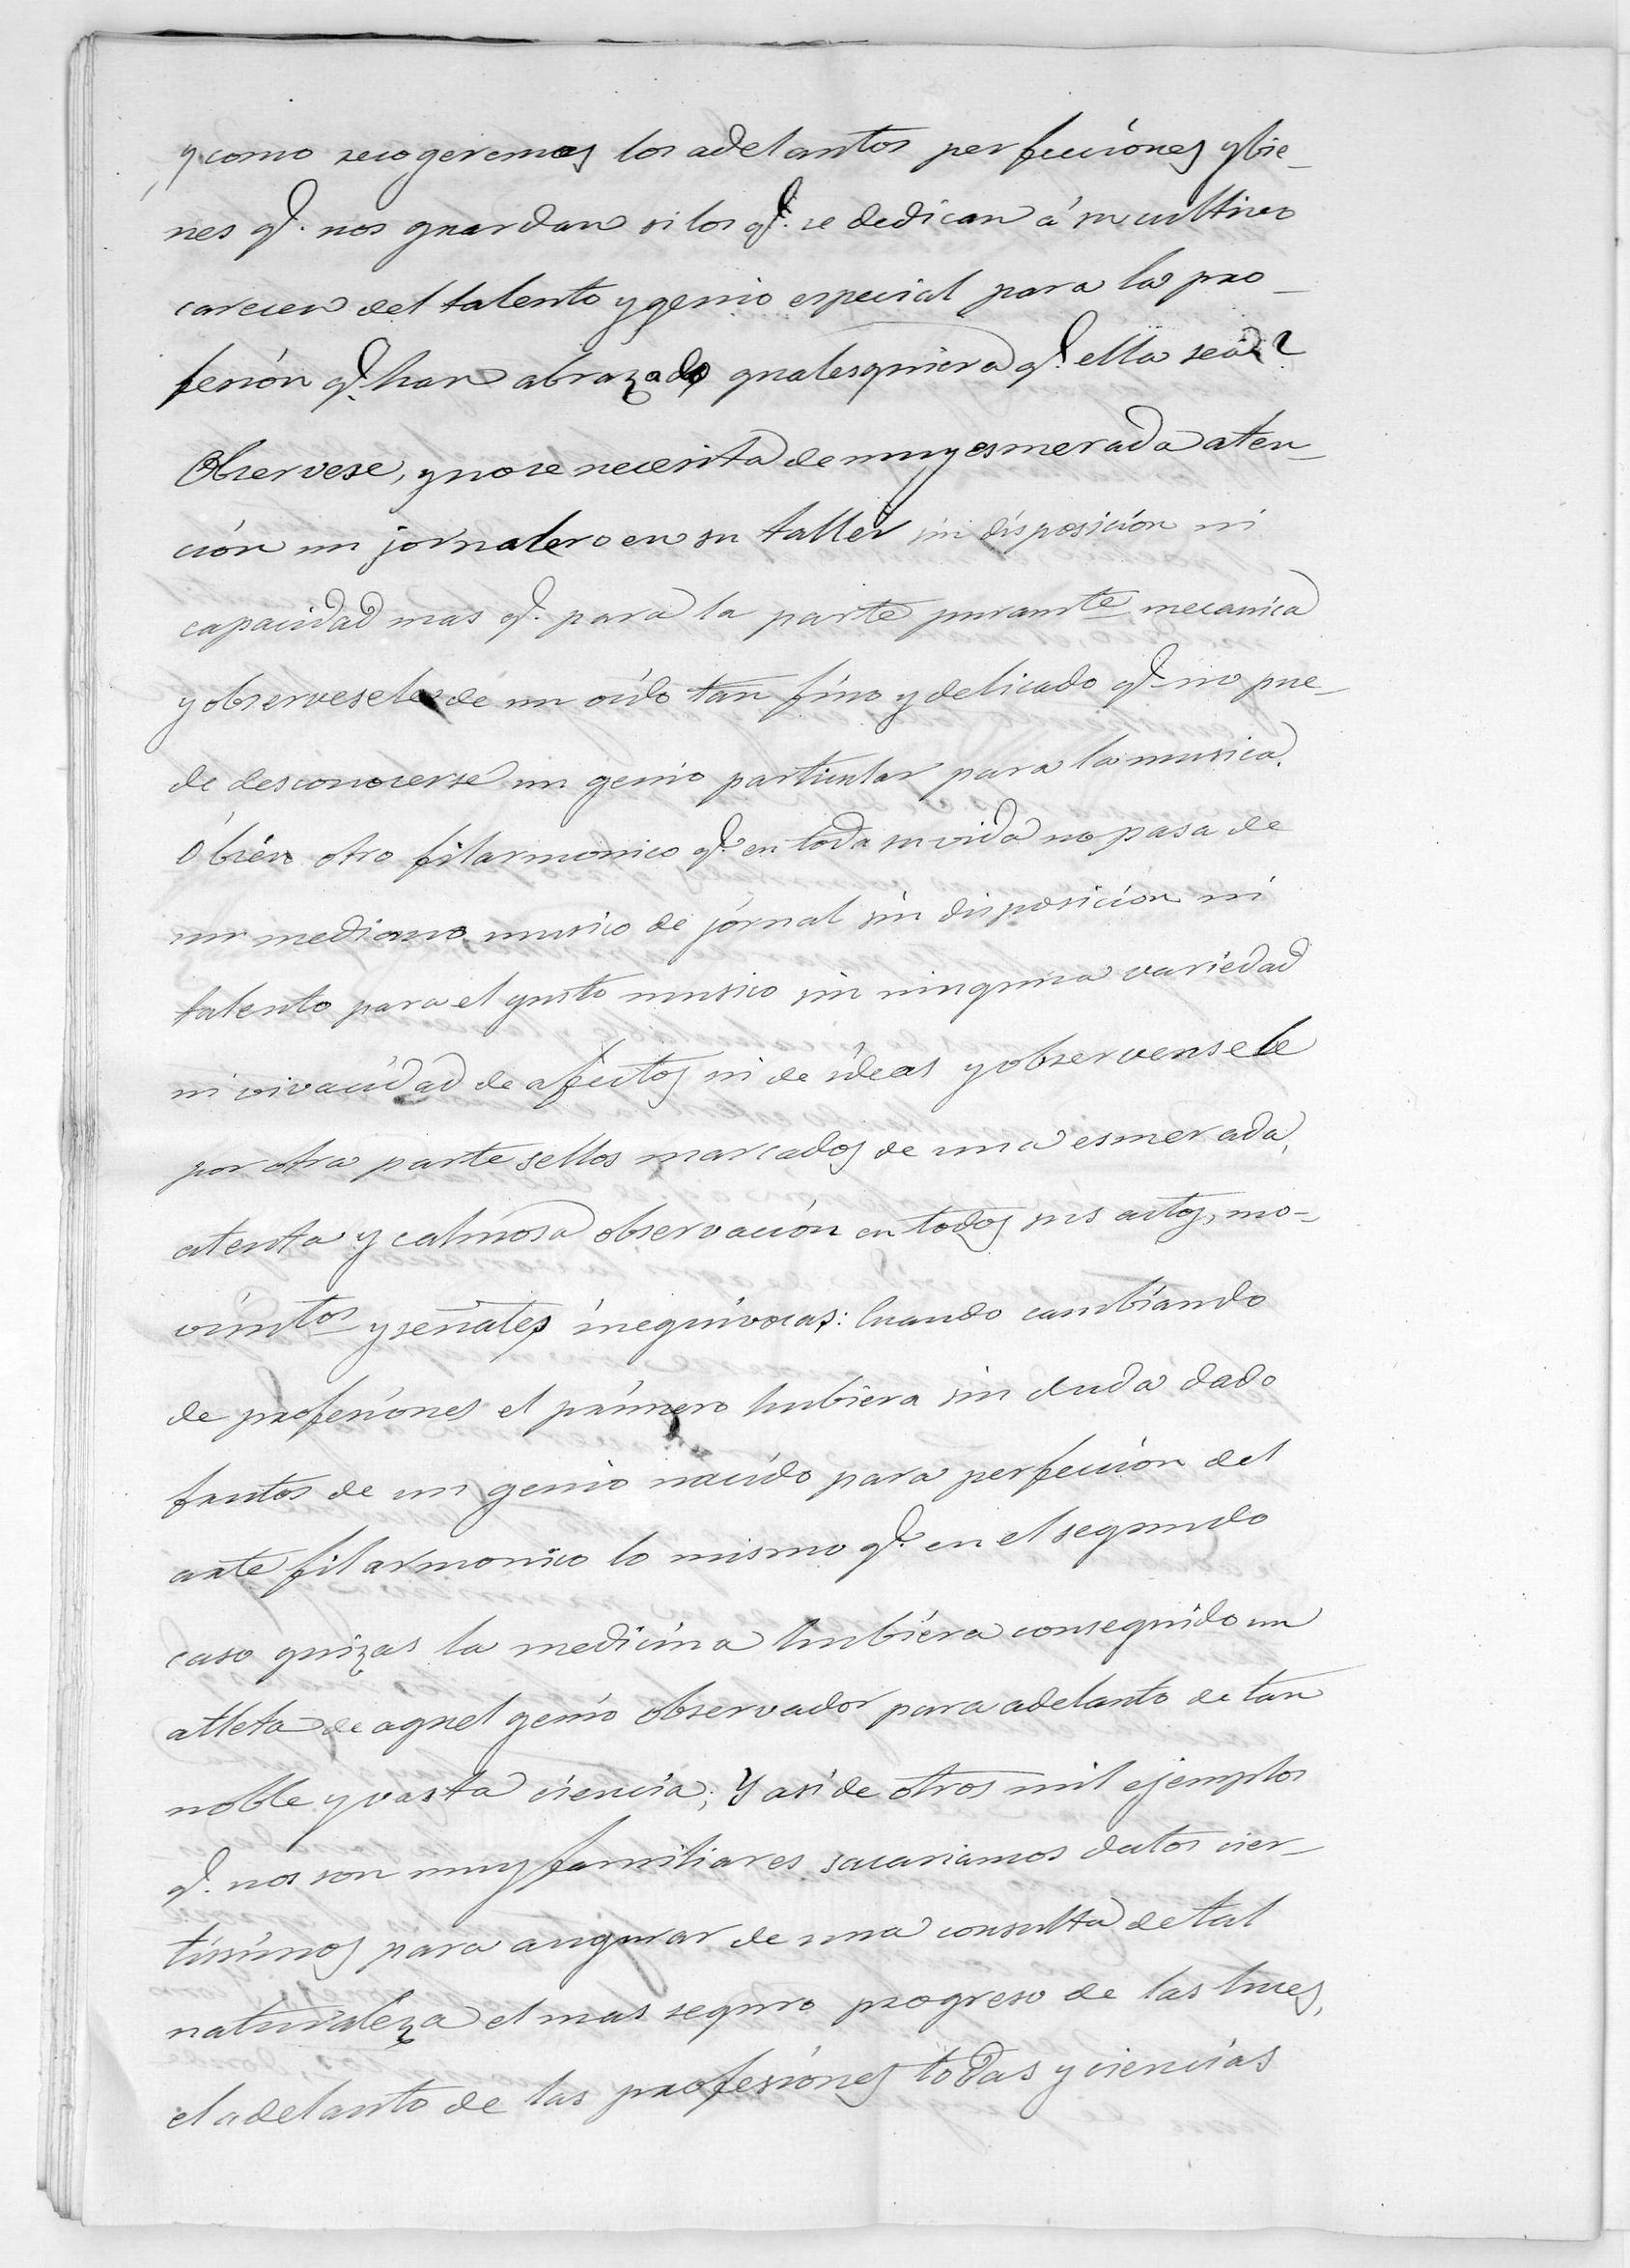 y como recogeremos los adelantos perfecciones y bie_
nes q.e nos guardan si los q.e se dedican á su cultivo
carecen del talento y genio especial para la pro_
fesión q.e han abrazado qualesquiera q.e ella sea?
Observese, y no se necesita de muy esmerada aten_
ción un jornalero en su taller sin disposición ni
capacidad mas q.e para la parte puramte mecanica
y observesele de un oído tan fino y delicado q.e no pue_
de desconocerse un genio particular para la musica.
Ó bien otro filarmonico q.e en toda su vida no pasa de
un mediano musico de jornal sin disposición ni
talento para el gusto musico sin ninguna variedad
ni vivacidad de afectos ni de ideas y observensele
por otra parte sellos marcados de una esmerada,
atenta y calmosa observación en todos sus actos, mo_
vimtos y señales inequivocas: Cuando cambiando
de profesiones el primero hubiera sin duda dado
frutos de un genio nacido para perfección del
arte filarmonico lo mismo q.e en el segundo
caso quizas la medicina hubiera conseguido un
atleta de aquel genio observador para adelanto de tan
noble y vasta ciencia; Y asi de otros mil ejemplos
q.e nos son muy familiares sacariamos datos cier_
tisimos para augurar de una consulta de tal
naturaleza el mas seguro progreso de las luces,
el adelanto de las profesiones todas y ciencias